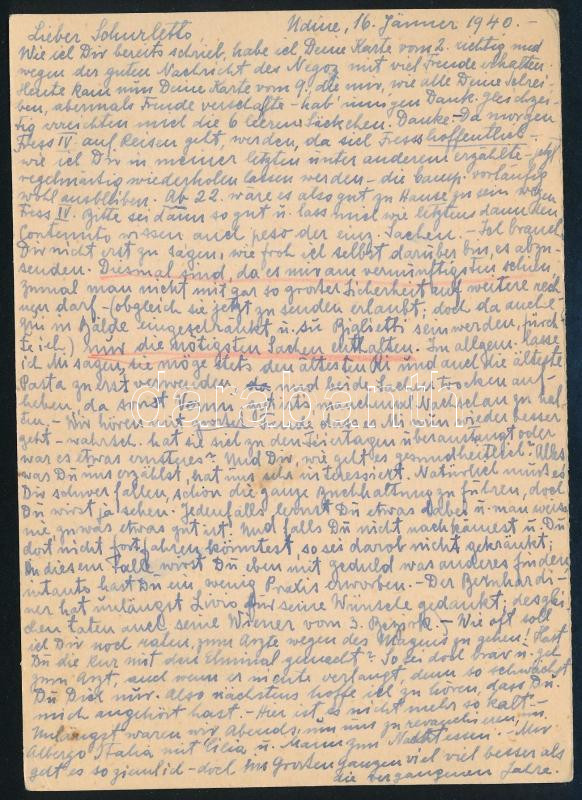 Lieber Schurletto, Udine, 16. Jänner 1940.-
Wie ich Dir bereits schrieb, habe ich Deine Karte vom 2. richtig und
wegen der guten Nachricht des Negoz mit viel Freude erhalten.
Heute kam nun Deine Karte vom 9. die mir, wie alle Deine Schrei-
ben, abermals Freude verschaffte - hab' innigen Dank. Gleichzei-
tig erreichten mich die 6 leeren Säckchen. Danke - Da morgen
Fess IV auf Reisen geht, werden, da sich Fesss hoffentlich -
wie ich Dir in meiner letzten unter anderem erzählte - jetzt
regelmässig wiederholen lassen werden - die Camp. vorläufig
wohl ausbleiben. Ab 22. wäre es also gut zu Hause zu sein wegen
Fess IV. Bitte sei dann so gut u. lass mich wie letztens dann den
Contenuto wissen auch peso der einz. Sachen. - Ich brauch'
Dir nicht erst zu sagen, wie froh ich selbst darüber bin, es abzu-
senden. Diesmal sind, da es mir am vernünftigsten schien,
zumal man nicht mit gar so grosser Sicherheit auf weitere rech-
nen darf - (obgleich sie jetzt zu senden erlaubt; doch da auch
in Bälde eingeschränkt u. su Biglietti sein werden, fürch-
te ich) nur die nötigsten Sachen enthalten. In allgem. lasse
ich M sagen, sie möge stets den ältesten Ri und auch die älteste
Pasta zuerst verwenden und beide Sachen trocken auf-
heben, da sonst
- Wir hören mit Freude, dass es Mi. nun wieder besser
geht - wahrsch. hat sie sich zu den Feiertagen überanstrengt oder
war es etwas ernsteres? Und Dir, wie geht es gesundheitlich? Alles
was Du uns erzählst, hat uns sehr interessiert. Natürlich muss es
Dir schwer fallen, schon die ganze Buchhaltung zu führen, doch
Du wirst ja sehen. Jedenfalls lernst Du etwas dabei u. man weiss
nie zu was etwas gut ist. Und falls Du nicht nachkämest u. Du
dort nicht fortfahren könntest, so sei darob nicht gekränkt;
in diesem Falle wirst Du eben mit Geduld was anderes finden
intanto hast Du ein wenig Praxis erworben. - Der Bernhardi-
ner hat unlängst Livio für seine Wünsche gedankt; desglei-
chen taten auch seine Wiener vom 3. Bezirk. - Wie oft soll
ich Dir noch raten, zum Arzte wegen des Magens zu gehen! Hast
Du die Kur mit dem gemacht? So sei doch brav u. geh
zum Arzt, auch wenn er nichts verlangt, denn so schwächst
Du Dich nur. Also nächstens hoffe ich zu hören, dass Du
mich angehört hast. - Hier ist es nicht mehr so kalt. -
Unlängst waren wir Abends, um uns zu revanchieren, im
Albergo Italia mit Licia u. Mann zum Nachtessen. - Mir
geht es so ziemlich - doch im Grossen Ganzen viel viel besser als
die vergangenen Jahre.
darabanth